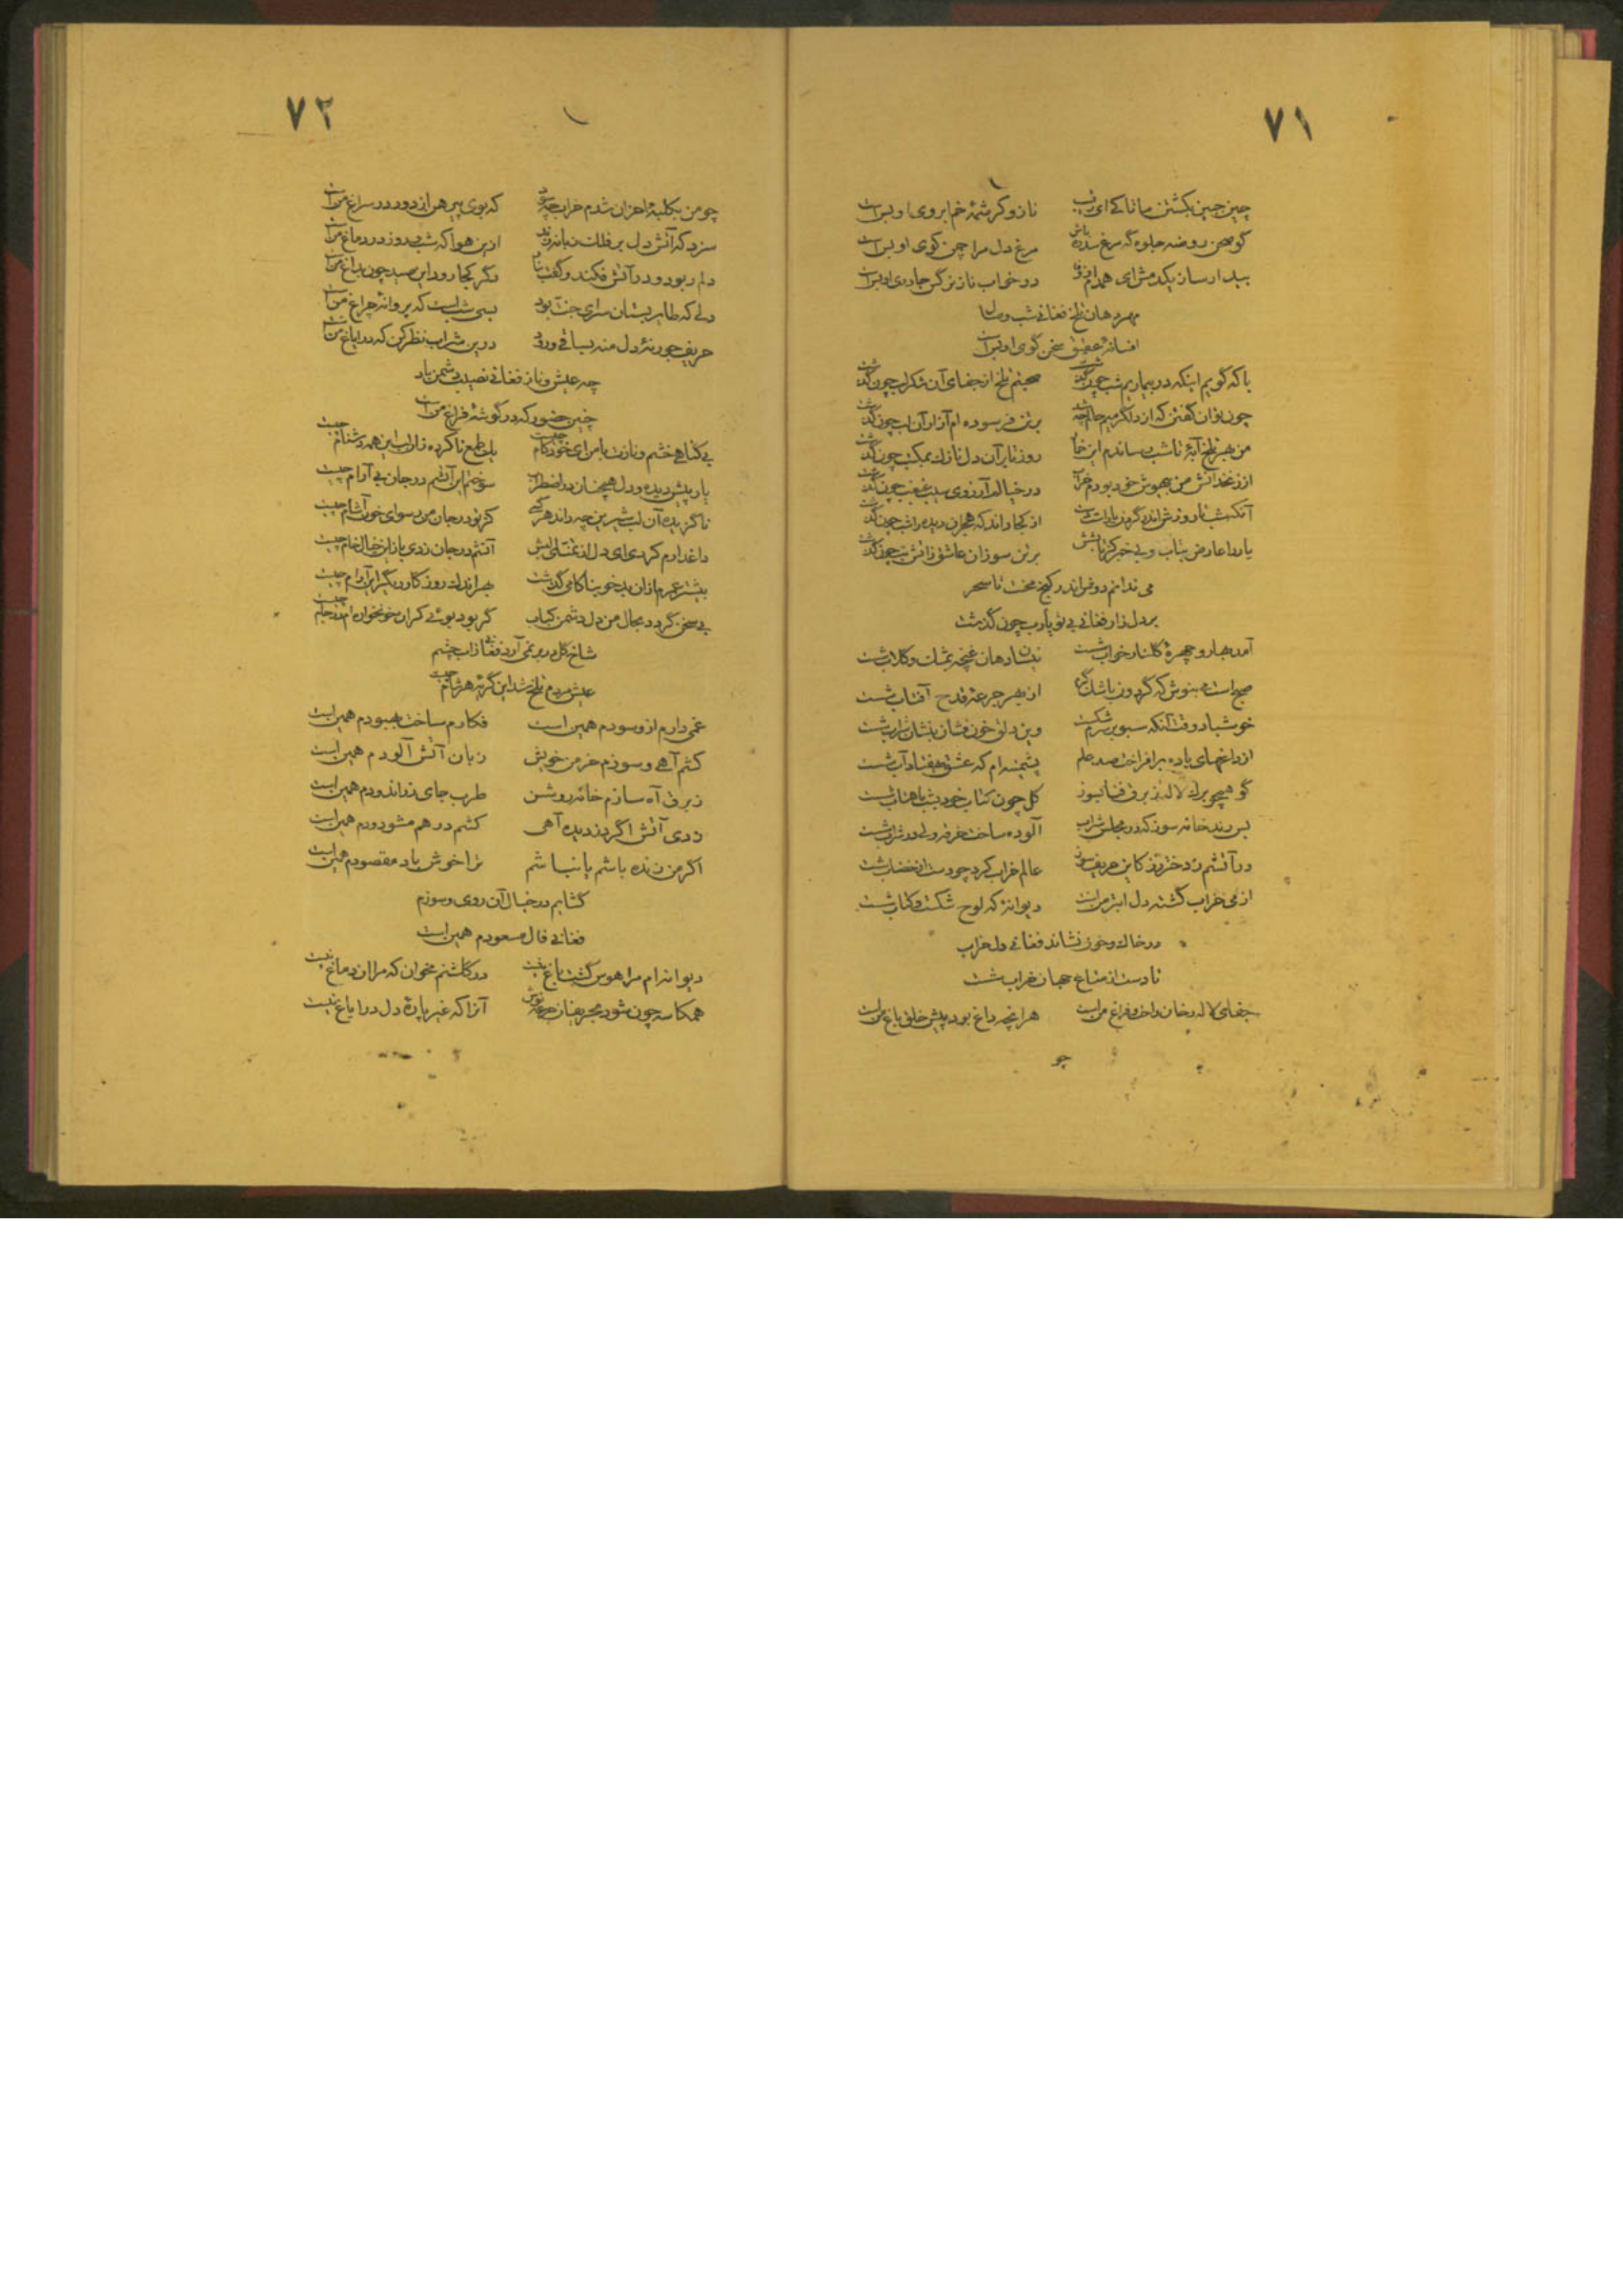 ۷۱
چین جبین بکشتن ما تا کی ای رقیب نازو کرشمهٔ خم ابروی او بس است
کو صحن روضه جلوه گه مرغ سدره باش مرغ دل مرا چمن کوی او بس است
بیدار ساز یکدمش ای همدم در خواب ناز نرگس جادوی او بس است
مهر دهان تلخ فغانی شب وصال
افسانهٔ عقیق سخن گوی او بس است
با که گویم اینکه در بیماریم شب چون گذشت صحبتم تلخ از جفای آن شکر لب چون گذشت
چون توان گفتن که از دلگرمیم حالم چه شد بر تن فرسوده ام آزار آن تب چون گذشت
من بهر تلخابهٔ تا شب رساندم این خمار روز تا بر آن دل نازک بمکتب چون گذشت
من بیهوش خود بودم خراب در خیالم آرزوی سیب غبغب چون گذشت
آنکه شب تا روز شراندن گردون باده است از کجا داند که هجران دیده را شب چون گذشت
یار را عارض بتاب و بی خبر کز تابشش بر تن سوزان عاشق ز آتش تب چون گذشت
می ندانم دوش اندر کنج محنت تا سحر
بر دل زار فغانی بی تو یارب چون گذشت
آمد بهار و چهرهٔ گلنار خواب شست دهان غنچه بمشک و گلاب شست
صبح است می بنوش که گردون از بهر جرعه قدح آفتاب شست
خوش باد وقت آنکه سبو بر سرم شکست وین دلق خون فشان شراب شست
از داغهای باده برافراخت صد علم پشمینه ام که عشق بهفتاد آب شست
گو هیچ لاله ز برق فنا بسوز گل چون کتاب خود بشب ماهتاب شست
بس رند خانه سوز که در مجلس شراب آلوده ساخت خرقه ولی در شراب شست
در آتشم ز دختر رز کاین حریف سوز عالم خراب کرد چو دست از خضاب شست
از می خراب گشته دل ابتر من است دیوانهٔ که لوح شکست و کتاب شست
در خاک و خون نشاند فغانی دل خراب
تا دست از متاع جهان خراب شست
جفای لاله رخان راحت و فراغ من است هر آنچه داغ بود پیش خلق باغ من است
چو
۷۲
چو من بکلبهٔ احزان شدم خراب چه سود که بوی پیرهن از دور در سراغ من است
سزد که آتش دل بر فلک زبانه زند ازین هوا که شب و روز در دماغ من است
دلم ربود و در آتش فکند و گفت دگر کجا رود این صید چون بداغ من است
دلی که طایر بستان سرای جنت بود بسی شب است که پروانهٔ چراغ من است
حریف جور نهٔ دل منه بساقی درین شراب نظر کن که در ایاغ من است
چه عیش و ناز فغانی نصیب دشمن باد
چنین حضور که در گوشهٔ فراغ من است
بی گناهی خشم و نازت با من ای خودکام چیست یک طمع ناکرده زان لب این همه دشنام چیست
یار پیش دیده و دل همچنان در اضطراب سوختم این آتشم در جان بی آرام چیست
ناگزیده آن لب شیرین چه داند هر کسی کز تو در جان من رسوای خون آشام چیست
داغدارم کردی ای دل از غم آتشم در جان زدی باز این خیال خام چیست
بیشتر عمرم از آن بدخو بناکامی گذشت بهر اندک روزگار دیگر این آرام چیست
بی سخن گردد بحال من دل دشمن کباب گر بود بوئی کزان خونخواره ام در جام چیست
شاخ گل در بر نمی آرد فغانی زاب چشم
عیش مردم تلخ شد این گریهٔ هر شام چیست
غمی دارم ازو سودم همین است فکارم ساخت بهبودم همین است
کشم آهی و سوزم خرمن خویش زبان آتش آلودم همین است
ز برق آه سازم خانه روشن طرب جای زراندودم همین است
زدی آتش اگر دزدیده آهی کشم درهم مشو دودم همین است
اگر من زنده باشم یا نباشم ترا خوش باد مقصودم همین است
گشایم در خیال آن روی و سوزم
فغانی فال مسعودم همین است
دیوانه ام مرا هوس گشت باغ نیست در گلشنم مخوان که مرا آن دماغ نیست
همکاسه چون شود بحریفان جرعه نوش آنرا که غیر پارهٔ دل در ایاغ نیست